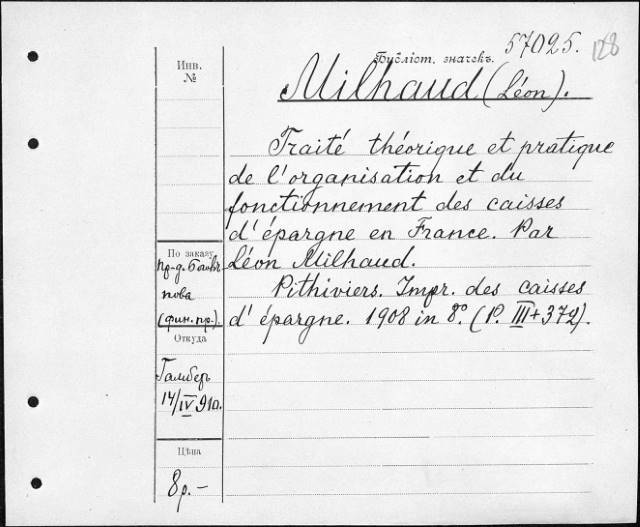 57025.
128
Инв.
№
Библіот. значекъ.
Milhaud (Léon).
Traité théorique et pratique
de l'organisation et du
fonctionnement des caisses
d'épargne en France. Par
Léon Milhaud.
Pithiviers. Impr. des caisses
d'épargne. 1908 in 8.º (P. III+372).
По заказу
пр-д.
пова
(фин. пр.).
Откуда
Гамберъ
14/IV 910.
Цѣна
8 р. –